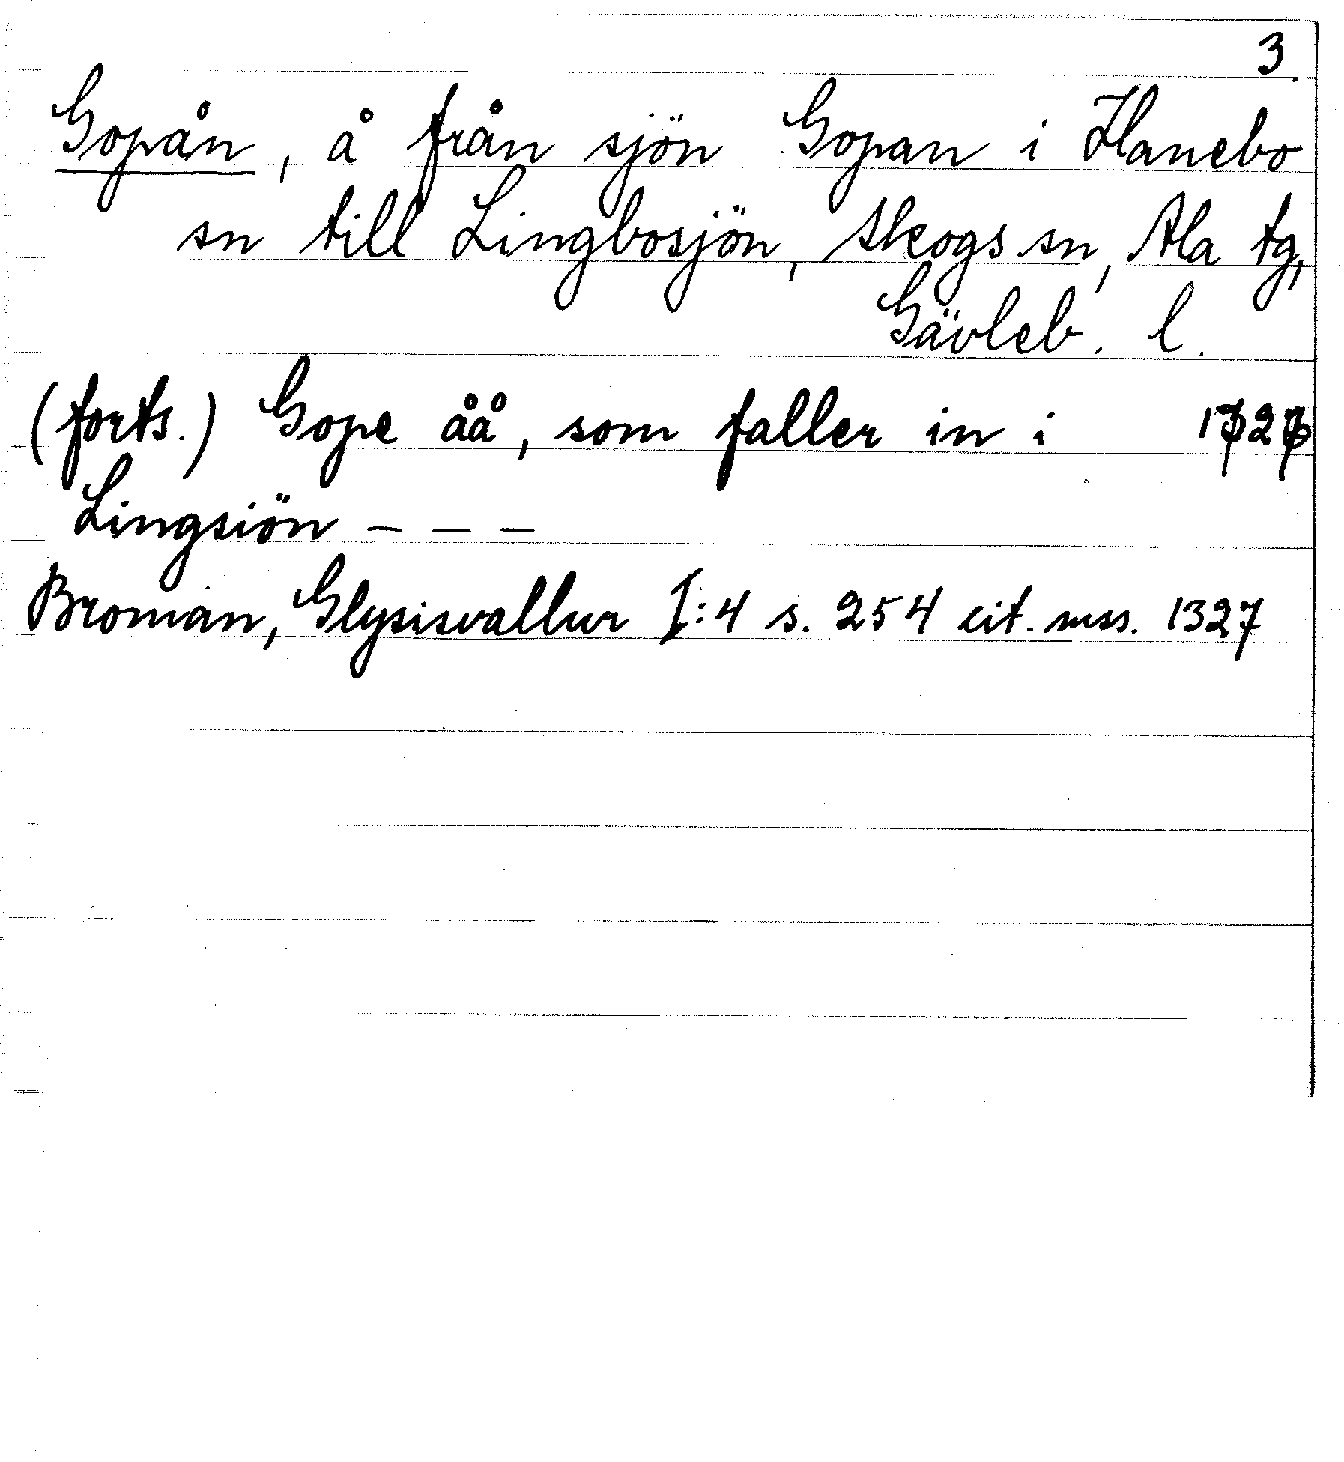 3.
Gopån, å från sjön Gopan i Hanebo
sn till Lingbosjön, Skogs sn, Ala tg,
Gävleb. l.
(forts.) Gope åå, som faller in i
Lingsiön - - -
Broman, Glysisvallur I:4 s. 254 cit. mss. 1327